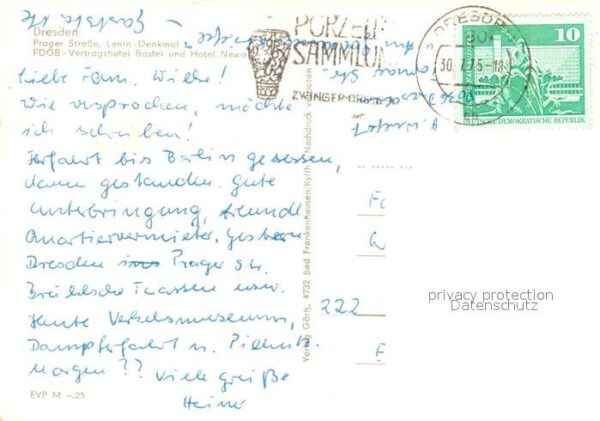 Dresden
Prager Straße, Lenin-Denkmal
FDGB-Vertragshotel Bastei und Hotel Newa
Liebe Fam. Wilke!
Wie versprochen, möchte
ich schreiben!
Herfahrt bis Berlin gesessen,
dann gestanden. Gute
Unterbringung, freundl.
Quartiervermieter. Gestern
Dresden Prager Str.
Brühlsche Terassen usw.
Heute Verkehrsmuseum,
Dampferfahrt n. Pillnitz.
Morgen??
Viele Grüße
Heiner
EVP M –.25
Verlag Görtz, 4732 Bad Frankenhausen/Kyffh. Nachdruck
PORZELL
SAMMLUN
ZWINGER-DRESDEN
DRESDEN
30.7.75-18
10
DEUTSCHE DEMOKRATISCHE REPUBLIK
222
privacy protection
Datenschutz